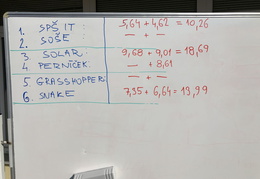 1. SPŠ IT : 5,64 + 4,62 = 10,26
2. SOŠE : — + —
3. SOLAR : 9,68 + 9,01 = 18,69
4. PERNÍČEK : — + 8,61
5. GRASSHOPPER : — + —
6. SNAKE 7,35 + 6,64 = 13,99